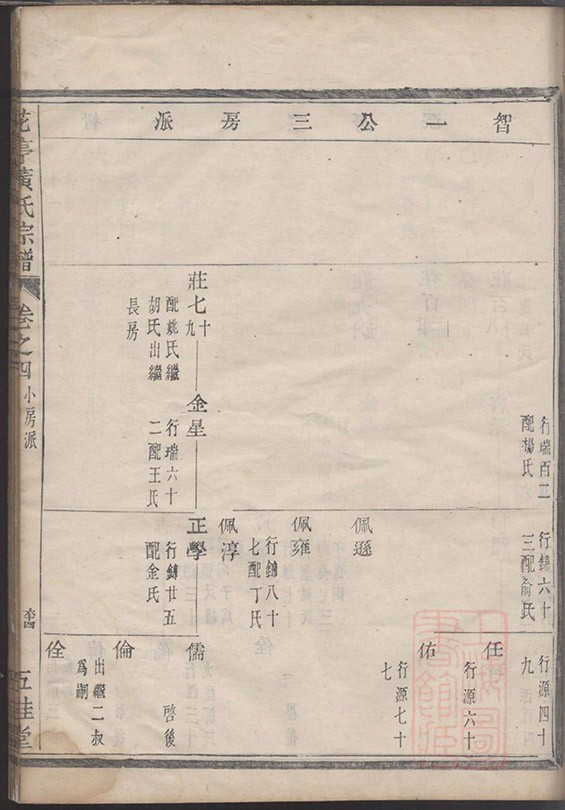 智一公三房派
行瑞百二
配楊氏
行錦六十
三配俞氏
行源四十
九
任
行源六十
佑
行源七十
七
佩遜
佩雍
行錦八十
七配丁氏
佩淳
莊七十九
配姚氏繼
胡氏出繼
長房
金星
行瑞六十
二配王氏
正學
行錦廿五
配金氏
儒
啓後
倫
出繼二叔
爲嗣
佺
花亭黃氏宗譜
卷之四
小房派
五桂堂